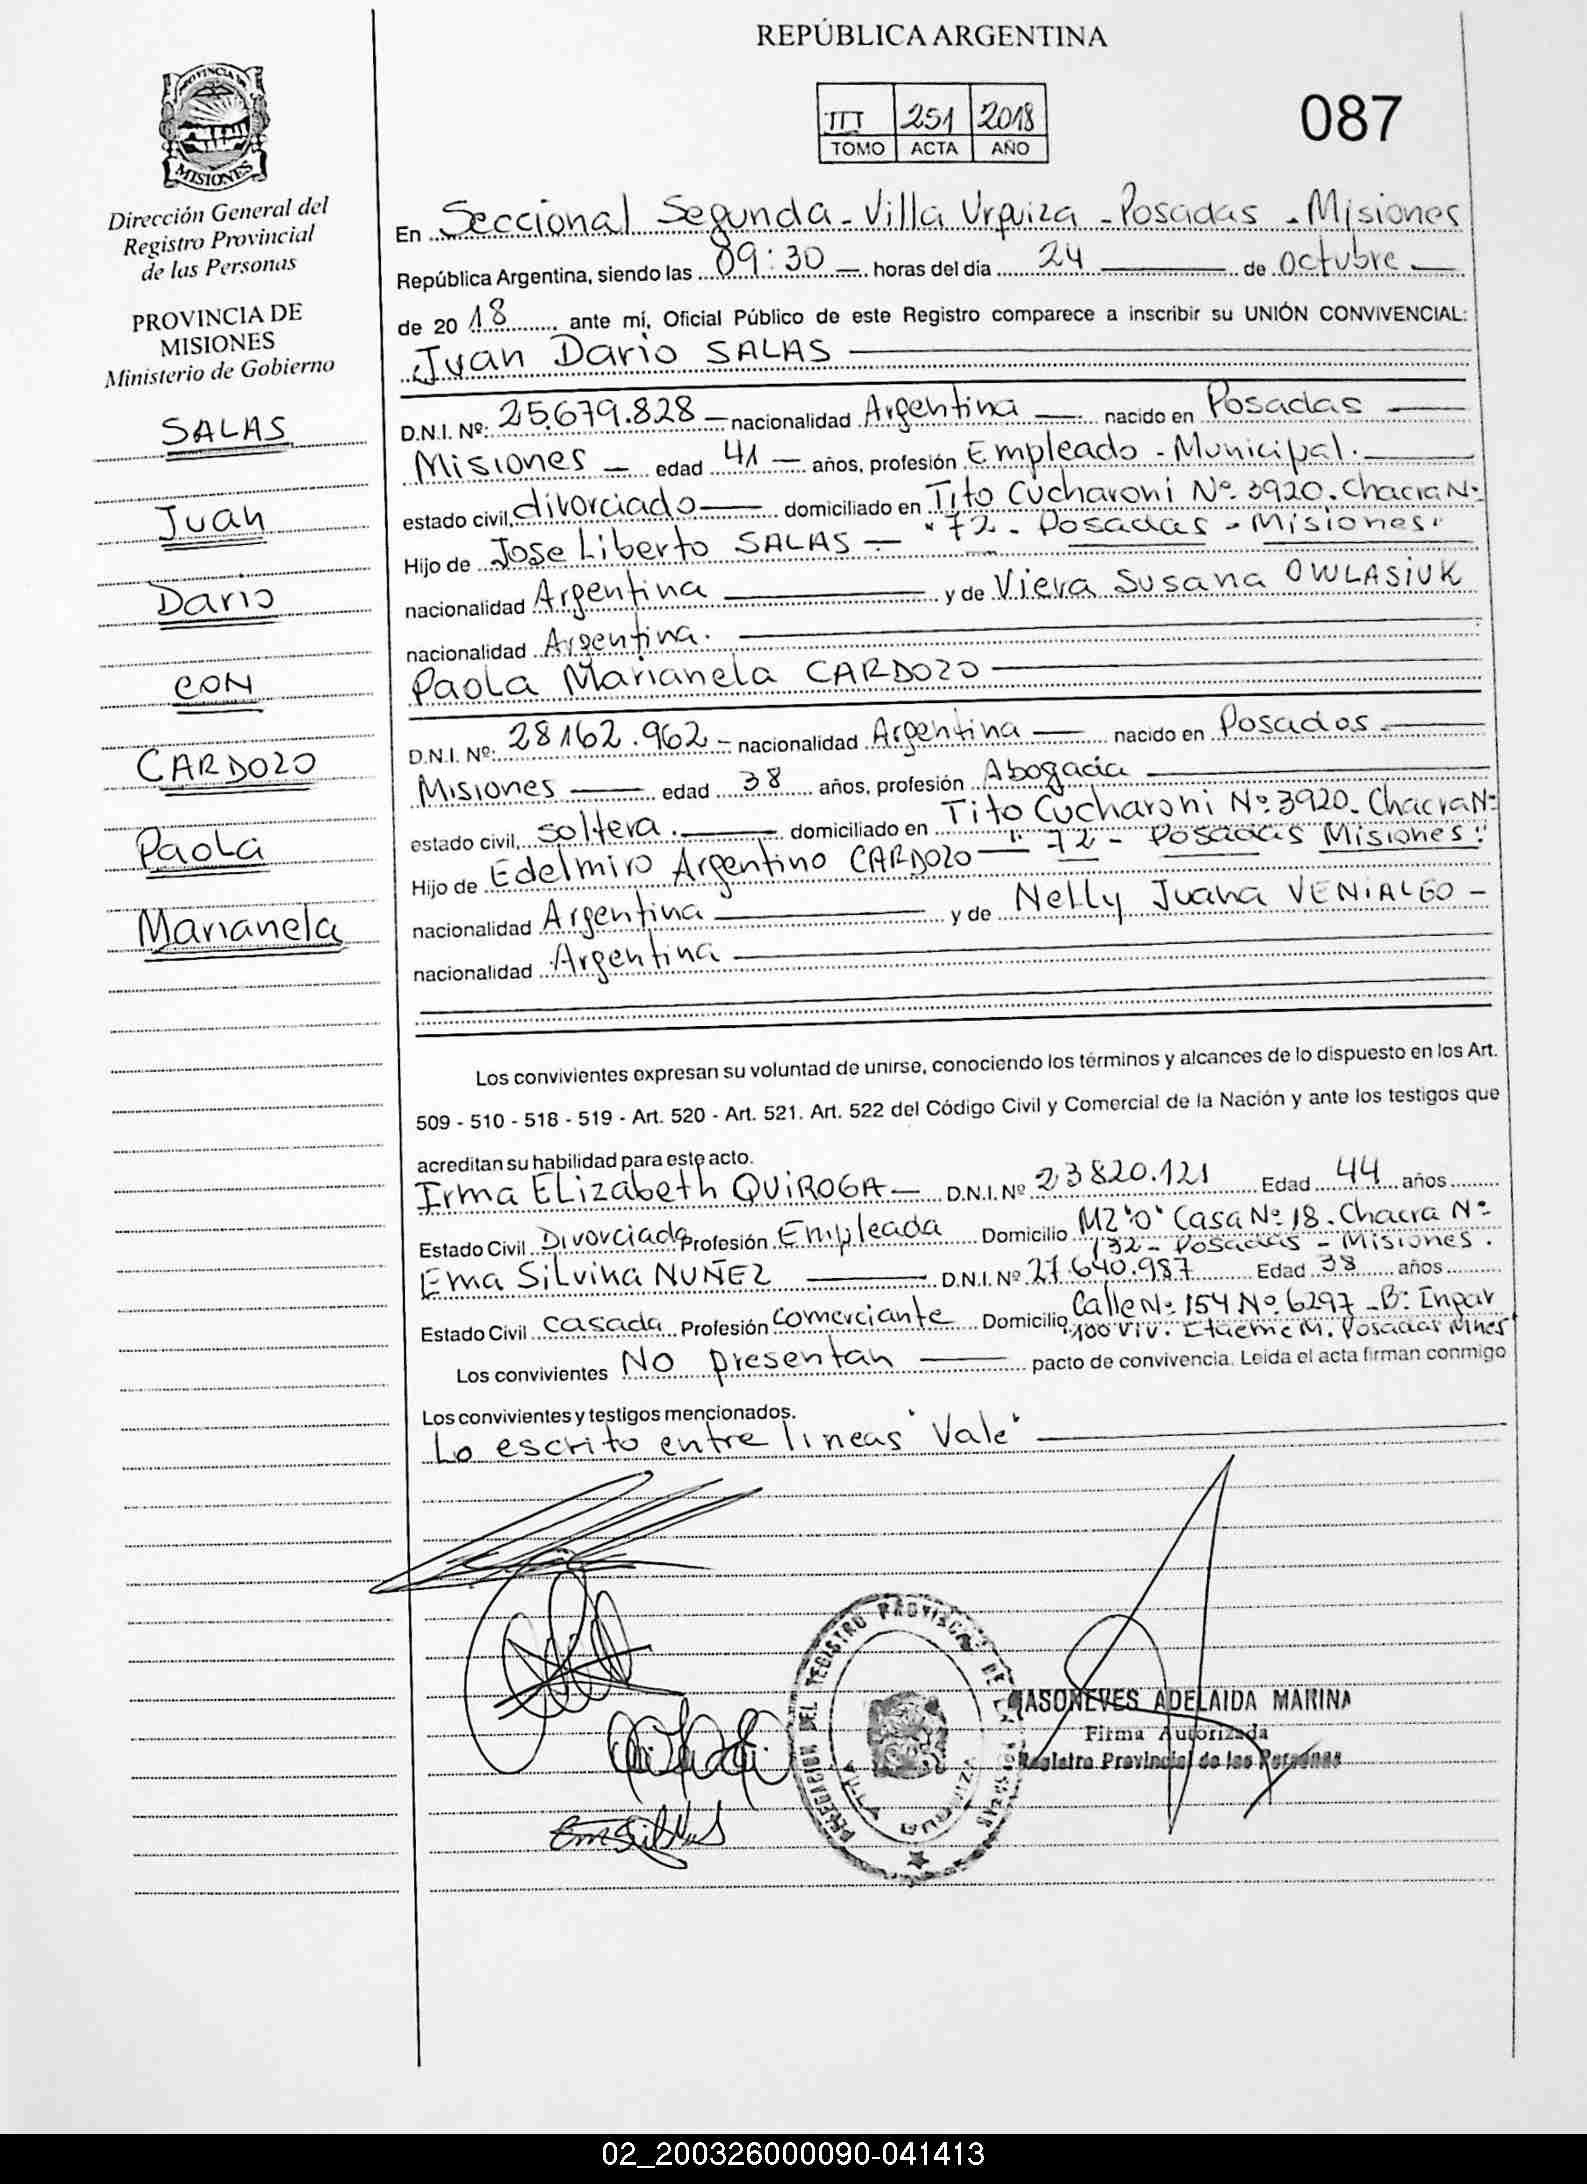 REPÚBLICA ARGENTINA
PROVINCIA DE
MISIONES
III 251 2018
TOMO ACTA AÑO
087
Dirección General del
Registro Provincial
de las Personas
PROVINCIA DE
MISIONES
Ministerio de Gobierno
SALAS
Juan
Dario
CON
CARDOZO
Paola
Marianela
En Seccional Segunda - Villa Urquiza - Posadas - Misiones
República Argentina, siendo las 09:30 — horas del día 24 — de Octubre —
de 2018 ante mí, Oficial Público de este Registro comparece a inscribir su UNIÓN CONVIVENCIAL:
Juan Dario SALAS —
D.N.I. Nº: 25.679.828 — nacionalidad Argentina — nacido en Posadas —
Misiones — edad 41 — años, profesión Empleado - Municipal. —
estado civil, divorciado — domiciliado en Tito Cucharoni Nº 3920. Chacra Nº
"72 - Posadas - Misiones"
Hijo de Jose Liberto SALAS —
nacionalidad Argentina — y de Viera Susana OWLASIUK
nacionalidad Argentina. —
Paola Marianela CARDOZO —
D.N.I. Nº: 28162.962 - nacionalidad Argentina — nacido en Posadas —
Misiones — edad 38 años, profesión Abogada —
estado civil, soltera. — domiciliado en Tito Cucharoni Nº 3920. Chacra Nº
" 72 - Posadas Misiones"
Hijo de Edelmiro Argentino CARDOZO —
nacionalidad Argentina — y de Nelly Juana VENIALGO -
nacionalidad Argentina —
Los convivientes expresan su voluntad de unirse, conociendo los términos y alcances de lo dispuesto en los Art.
509 - 510 - 518 - 519 - Art. 520 - Art. 521. Art. 522 del Código Civil y Comercial de la Nación y ante los testigos que
acreditan su habilidad para este acto.
Irma Elizabeth QUIROGA — D.N.I. Nº 23820.121 Edad 44 años
Estado Civil Divorciada Profesión Empleada Domicilio MZ "O" Casa Nº 18. Chacra Nº
132 - Posadas - Misiones.
Ema Silvina NUÑEZ — D.N.I. Nº 27.640.987 Edad 38 años
Estado Civil casada Profesión Comerciante Domicilio Calle Nº 154 Nº 6297 - Bº
100 Viv. M. Posadas Mnes
Los convivientes No presentan — pacto de convivencia. Leida el acta firman conmigo
Los convivientes y testigos mencionados.
Lo escrito entre lineas "Vale" —
ADELAIDA MARINA
Firma Autorizada
Registro Provincial de las Personas
02_200326000090-041413